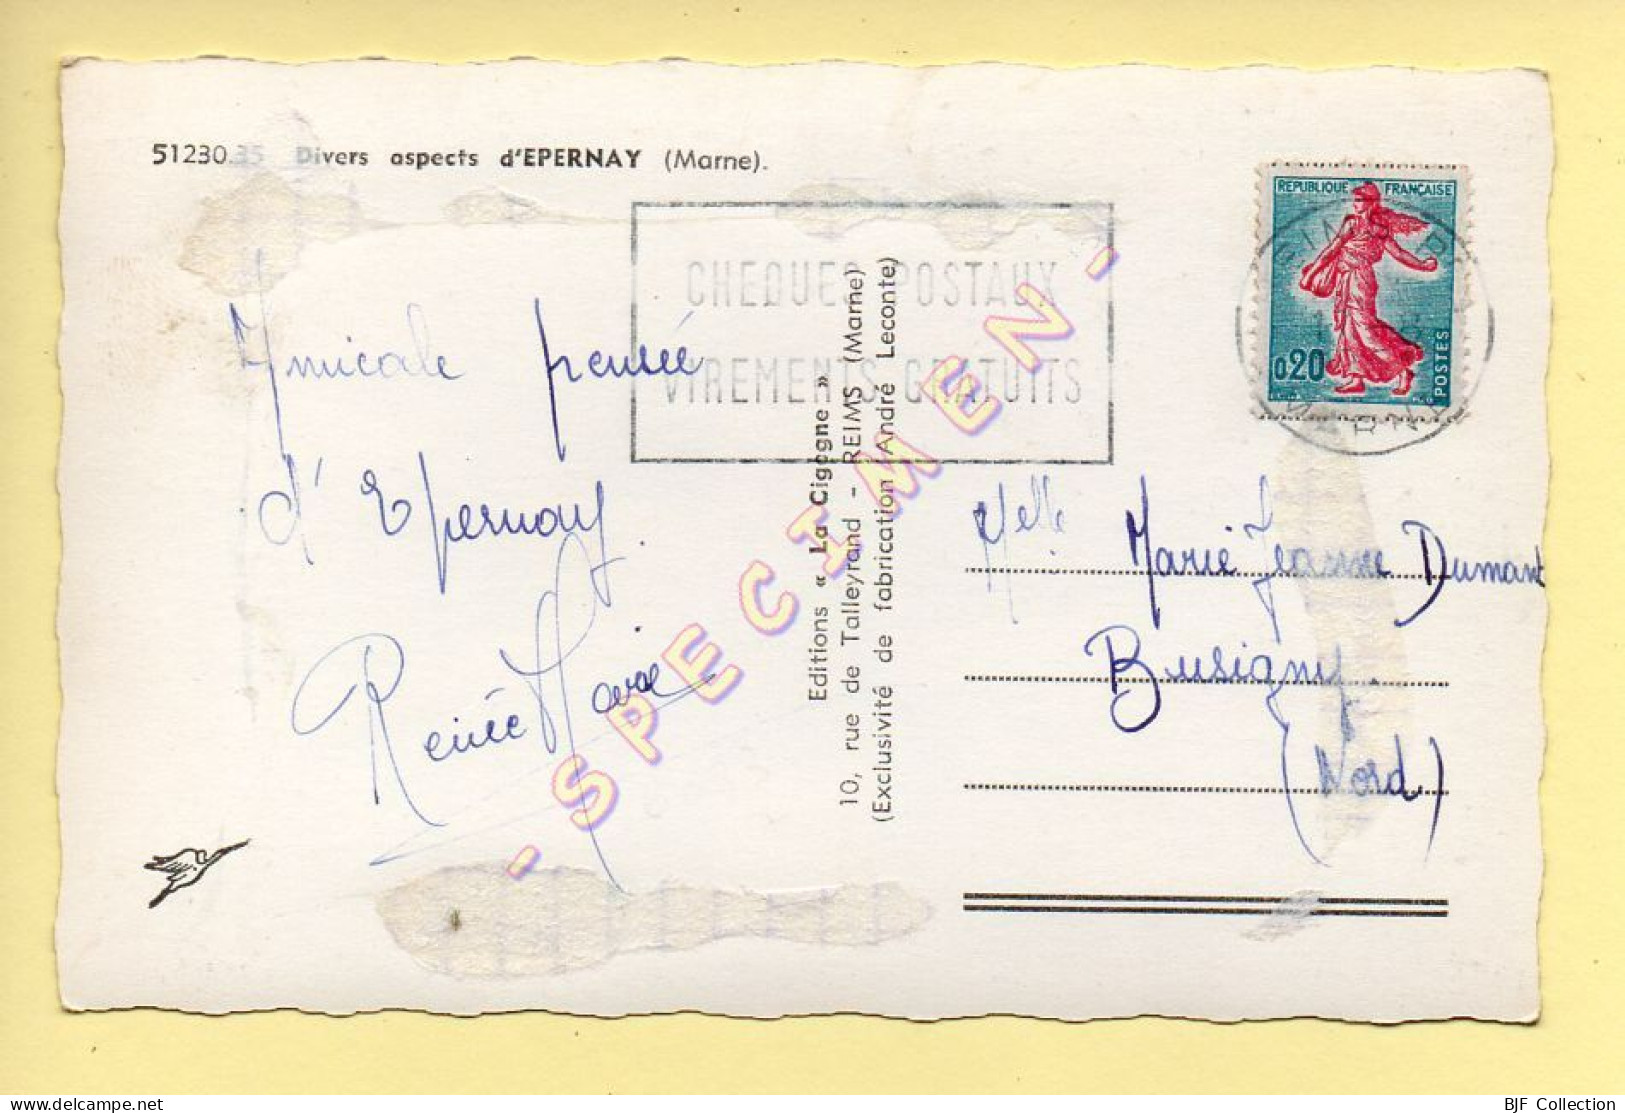 51230.35 Divers aspects d'EPERNAY (Marne).
REPUBLIQUE FRANÇAISE
0,20
POSTES
CHEQUES POSTAUX
VIREMENTS GRATUITS
Amicale pensée
d'Epernay
Renée
Editions « La Cigogne »
10, rue de Talleyrand - REIMS (Marne)
(Exclusivité de fabrication André Leconte)
- SPECIMEN -
Melle Marie Jeanne Dumont
Busigny.
(Nord)
MARNE
BJF Collection